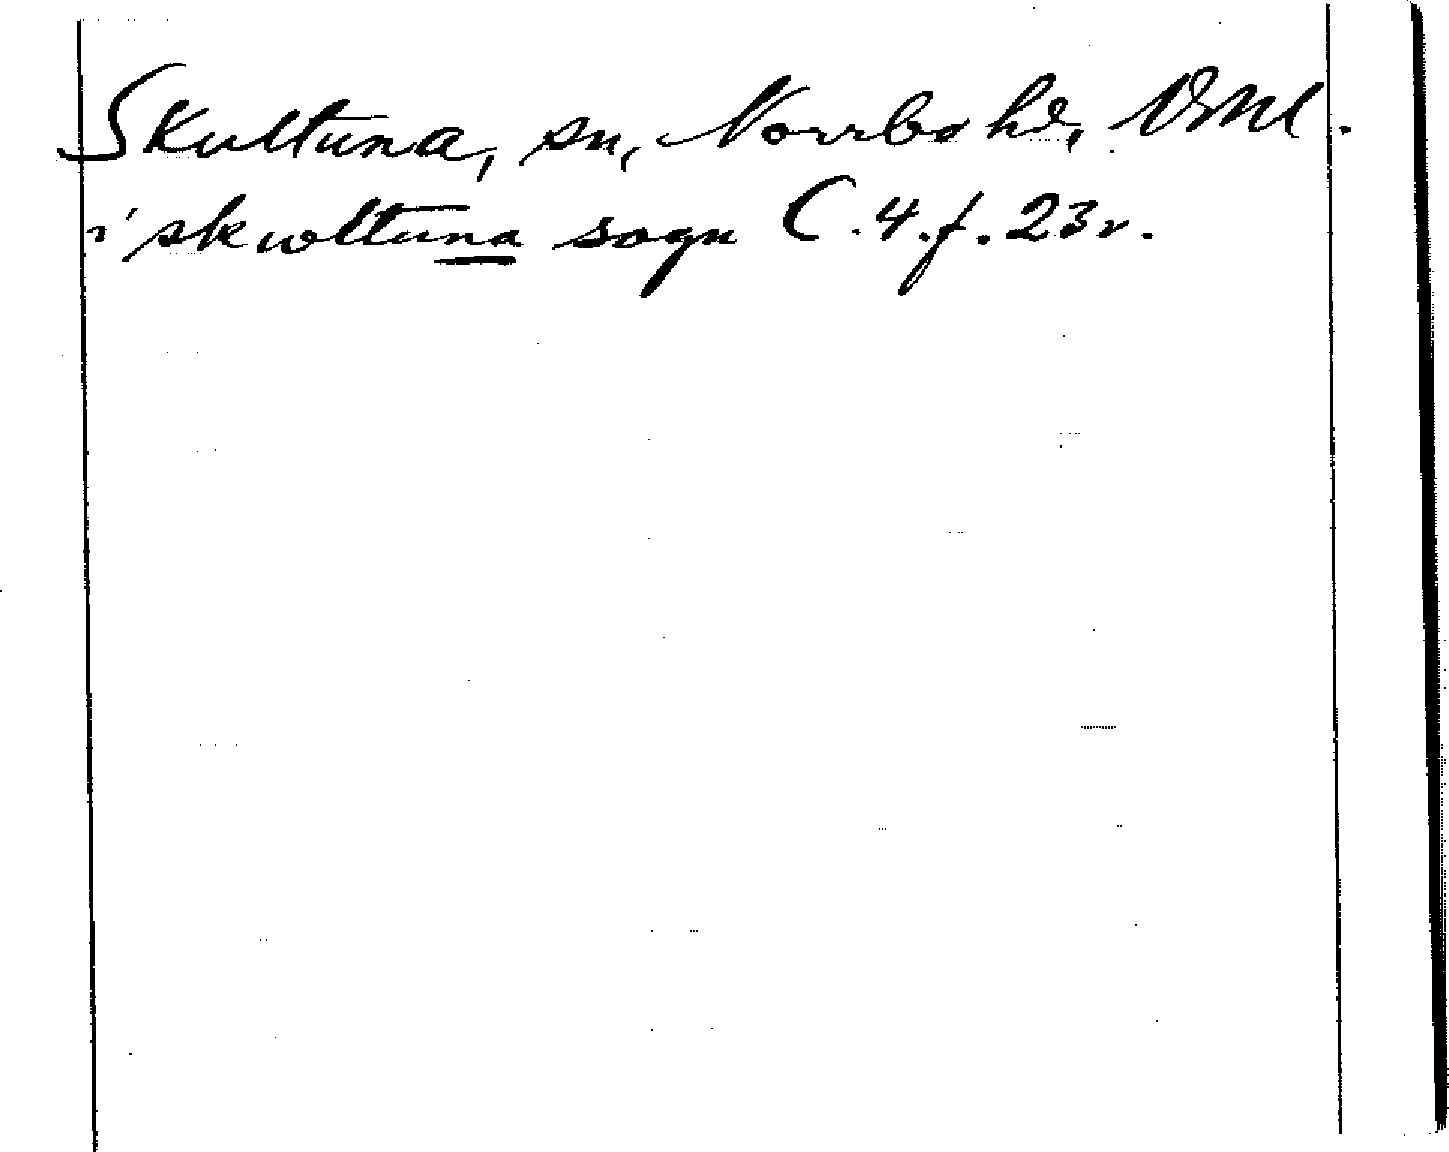 Skultuna, sn, Norrbo hd, Vml.
i skwltuna sogn C.4.f.23v.